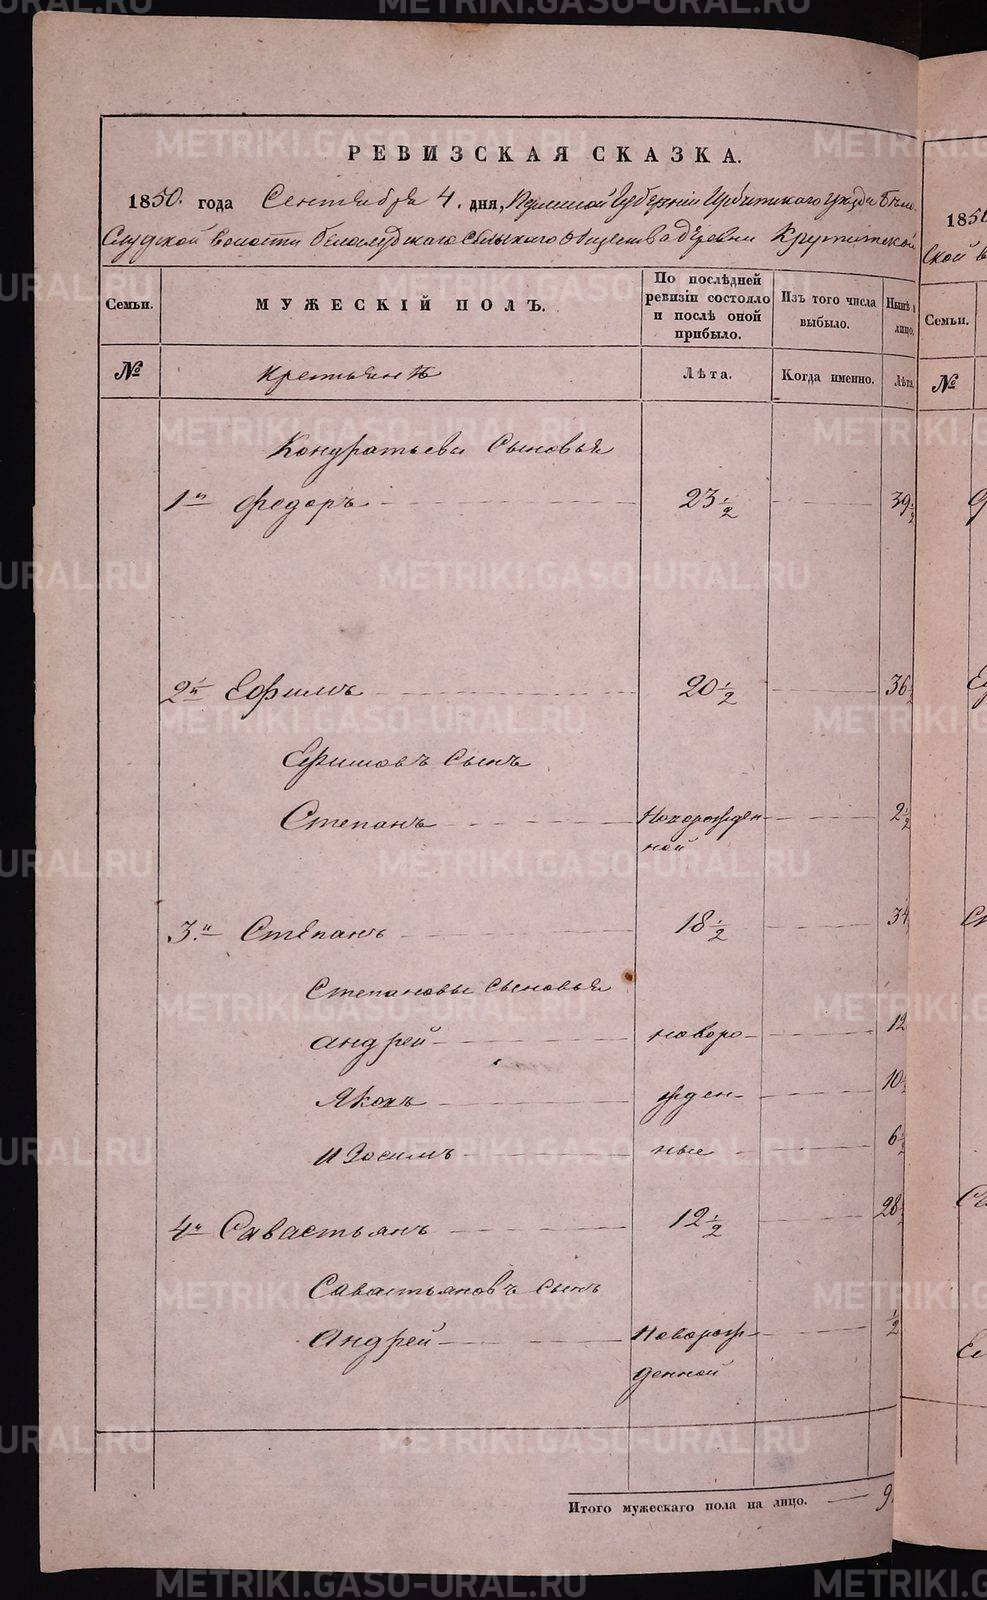 РЕВИЗСКАЯ СКАЗКА.
1850. года Сентября 4. дня, Пермской Губерніи Ирбитскаго уезда Бѣло-
Слудской волости Белослудскаго сельскаго общества деревни Крутитской
Семьи.
МУЖЕСКІЙ ПОЛЪ.
По послѣдней ревизіи состояло и послѣ оной прибыло.
Изъ того числа выбыло.
Нынѣ лицо.
№
Крестьянѣ
Лѣта.
Когда именно.
Лѣта.
Кондратьевы Сыновья
1й Федоръ 23 1/2 39 1/2
2й Ефимъ 20 1/2 36
Ефимовъ сынъ
Степанъ Новорожден- 2 1/2
ной
3й Степанъ 18 1/2 34
Степановы сыновья
Андрей новоро- 12
Яковъ жден- 10
и Зосимъ ные 6 1/2
4й Савастьянъ 12 1/2 28
Савастьяновъ сынъ
Андрей Поворож- 1/2
денной
Итого мужескаго пола на лицо. 9
1850
Семьи.
№
METRIKI.GASO-URAL.RU